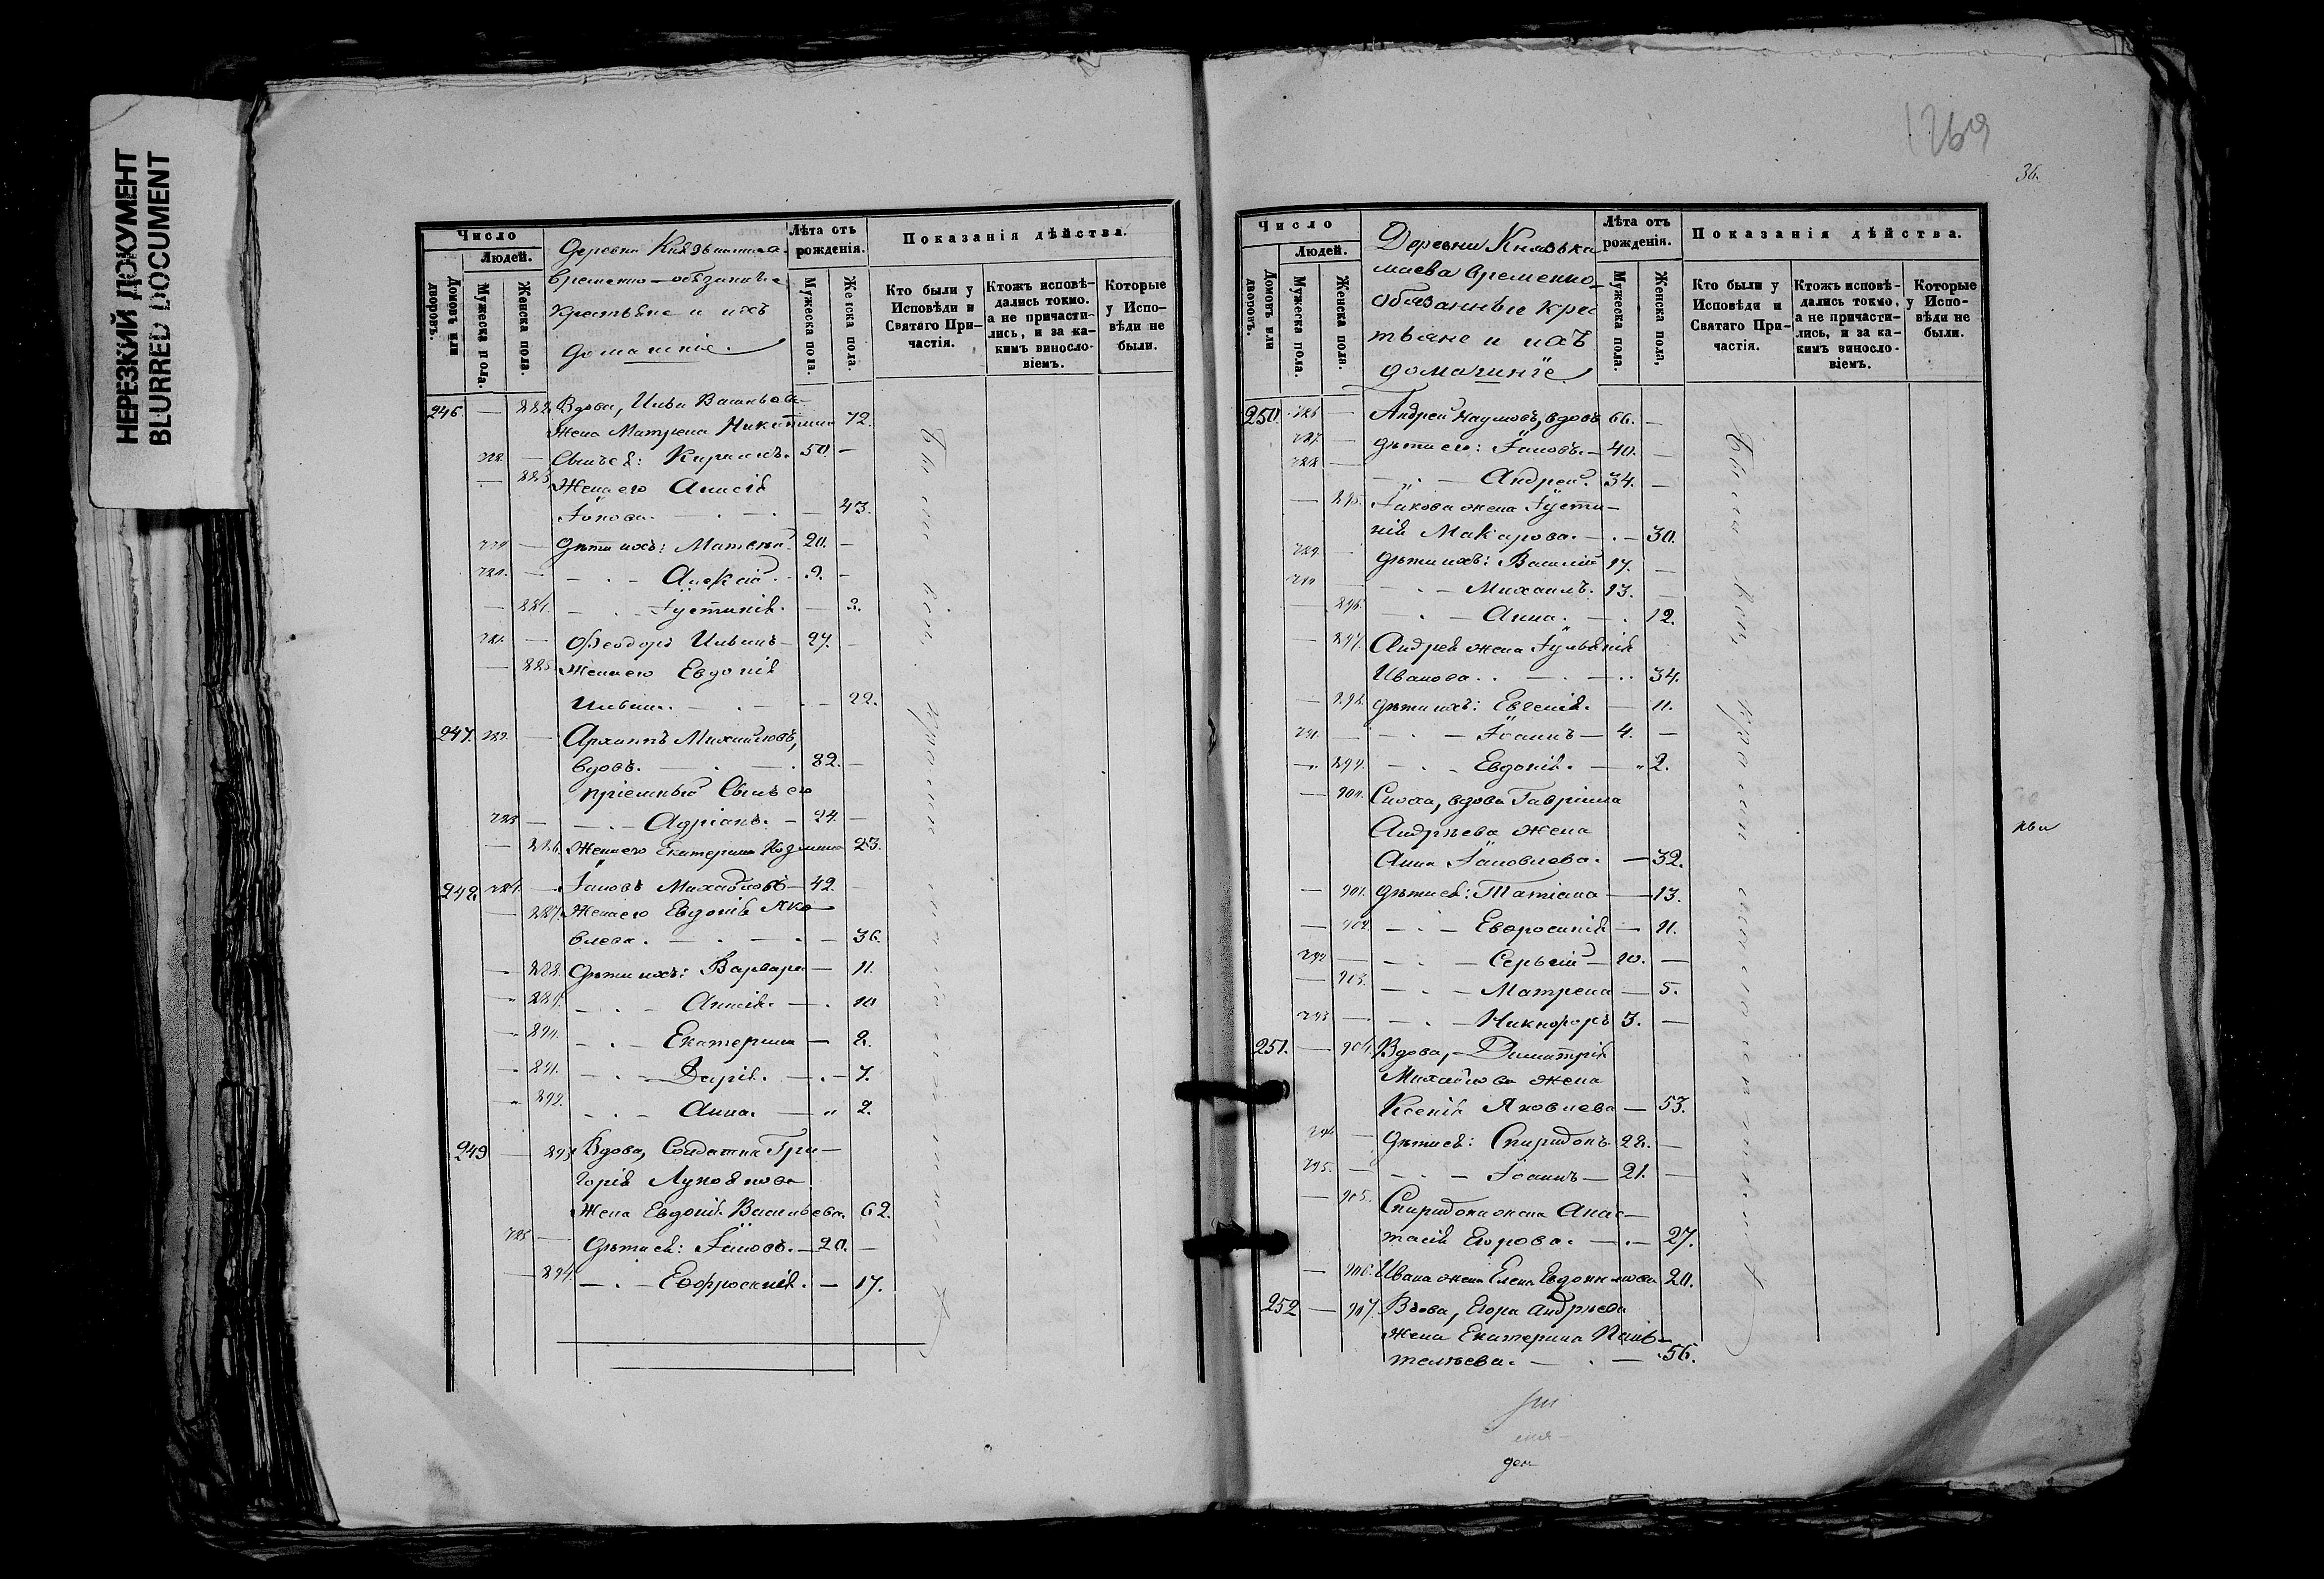 НЕРЕЗКИЙ ДОКУМЕНТ
BLURRED DOCUMENT
Число
Людей.
Домовъ или дворовъ.
Мужеска пола.
Женска пола.
Деревни
временно-обязанные
крестьяне и ихъ
домашніе.
Лѣта отъ рожденія.
Мужеска пола.
Женска пола.
Показанія дѣйства.
Кто были у Исповѣди и Святаго Причастія.
Ктожъ исповѣдались токмо, а не причастились, и за какимъ винословіемъ.
Которые у Исповѣди не были.
246. — 882. Вдова, Ильи Васильева
жена Матрена Никитина 72.
778. — Сынъ ея: Кириллъ. 50. —
— 883. Жена его Анисія
Іонова. — 43.
779 — Дѣти ихъ: Матѳей. 20. —
780. — Алексій. 9. —
— 884. Іустинія. — 3.
781. — Ѳеодоръ Ильинъ — 27. —
— 885. Жена его Евдокія
Ильина. — 22.
247. 782. — Архиппъ Михайловъ,
вдовъ. — 82. —
пріемный Сынъ его
783 — Адріанъ. — 24. —
— 886. Жена его Екатерина Козмина 23.
248. 784. — Іаковъ Михайловъ — 42. —
— 887. Жена его Евдокія Яко
влева. — 36.
— 888. Дѣти ихъ: Варвара — 11.
889. Анисія. — 10
890. Екатерина — 8.
891. Дарія. — 7.
892. Анна. — 2.
249 — 893 Вдова, Солдатка Гри-
горія
Жена Евдокія Васильева. 62.
785 — Дѣти ея: Іаковъ. — 20. —
— 894. Евфросинія. — 17.
Были у исповѣди
1269
36.
Число
Людей.
Домовъ или дворовъ.
Мужеска пола.
Женска пола.
Деревни Князька
маева временно-
обязанные крес
тьяне и ихъ
домашніе
Лѣта отъ рожденія.
Мужеска пола.
Женска пола,
Показанія дѣйства.
Кто были у Исповѣди и Святаго Причастія.
Ктожъ исповѣдались токмо, а не причастились, и за какимъ винословіемъ.
Которые у Исповѣди не были.
250. 786 — Андрей Наумовъ, вдовъ 66. —
787. — Дѣти его: Іаковъ. — 40. —
788 — Андрей. 34. —
— 895. Іакова жена Іусти-
нія Макарова. — 30.
789. — Дѣти ихъ: Василій 17. —
790 — Михаилъ. 13. —
— 896. Анна. — 12.
— 897. Андрея жена Іуліанія
Иванова. — 34.
— 898. Дѣти ихъ: Евгенія. — 11.
791. — Іоаннъ — 4. —
— 899. Евдокія. — 2.
— 900. Сноха, вдова Гавріила
Андреева жена
Анна Іаковлева. — 32.
— 901. Дѣти ея: Татіана — 13.
— 902. Евфросинія — 11.
792 — Сергій — 10. —
— 903. Матрена — 5.
793 — Никифоръ 3. —
251. — 904. Вдова, Димитрія
Михайлова жена
Ксенія Яковлева — 53.
794 — Дѣти ея: Спиридонъ 28. —
795. — Іоаннъ — 21. —
— 905. Спиридона жена Анас-
тасія Егорова. — 27.
— 906. Ивана жена Елена Евдокимова 20.
252 — 907. Вдова, Егора Андреева
жена Екатерина
56.